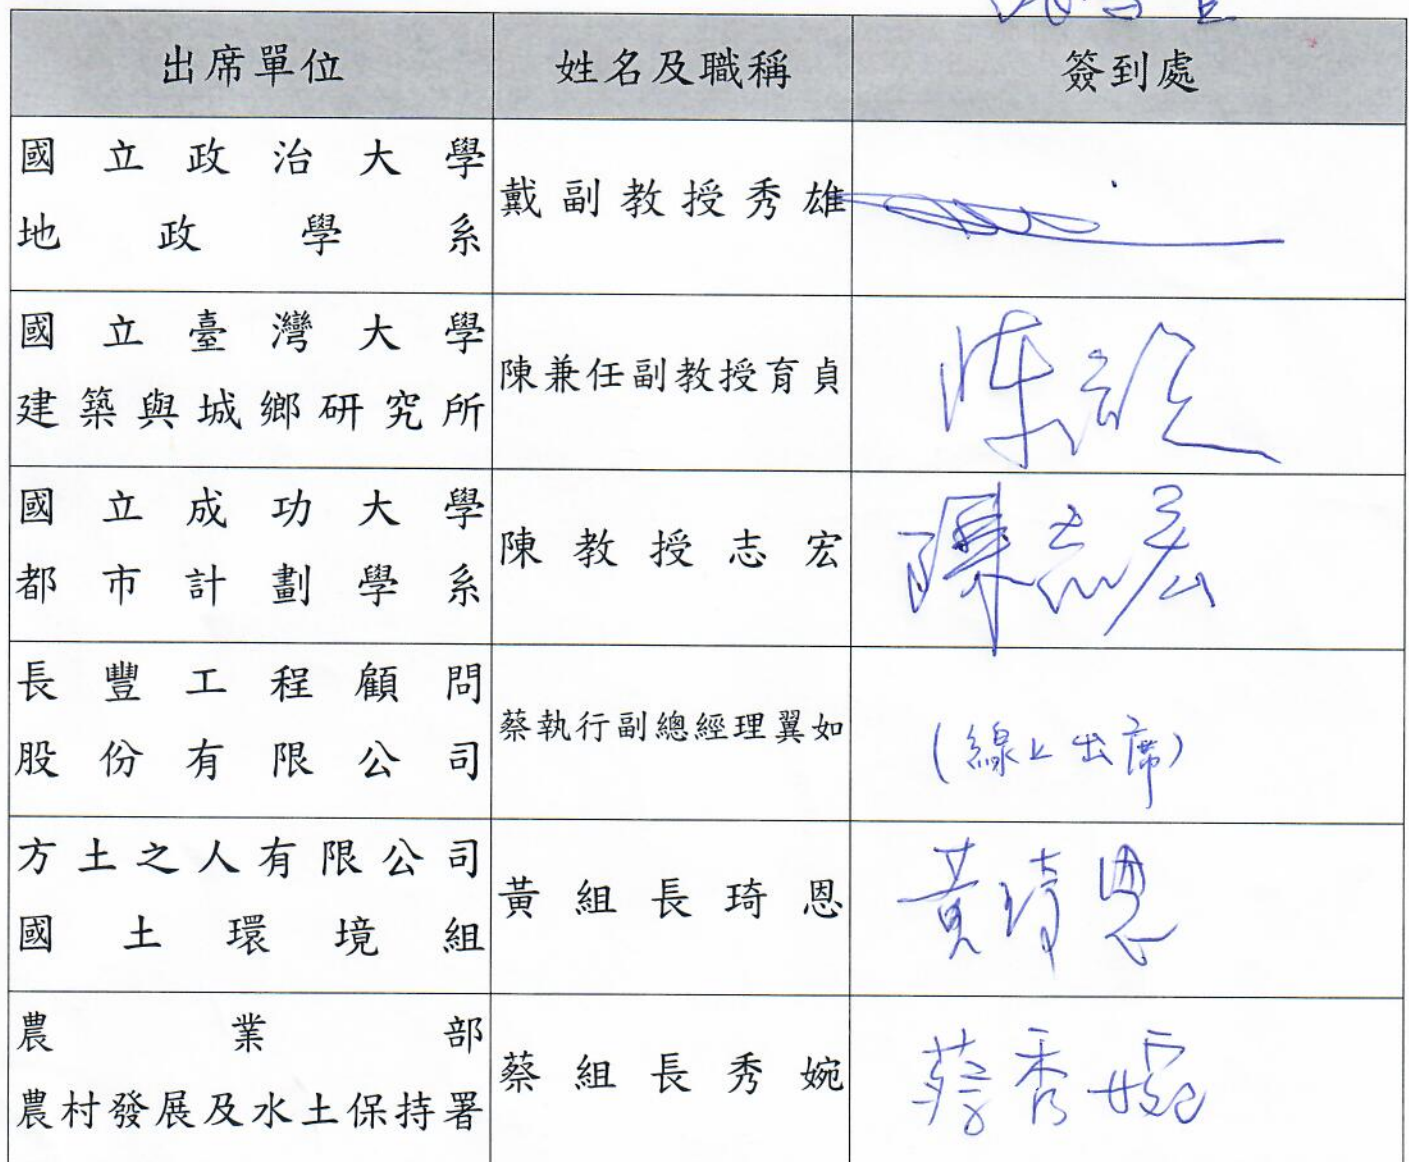 出席單位 姓名及職稱 簽到處
國立政治大學
地政學系
戴副教授秀雄
國立臺灣大學
建築與城鄉研究所
陳兼任副教授育貞
國立成功大學
都市計劃學系
陳教授志宏
陳志宏
長豐工程顧問
股份有限公司
蔡執行副總經理翼如
(線上出席)
方土之人有限公司
國土環境組
黃組長琦恩
黃琦恩
農業部
農村發展及水土保持署
蔡組長秀婉
蔡秀婉